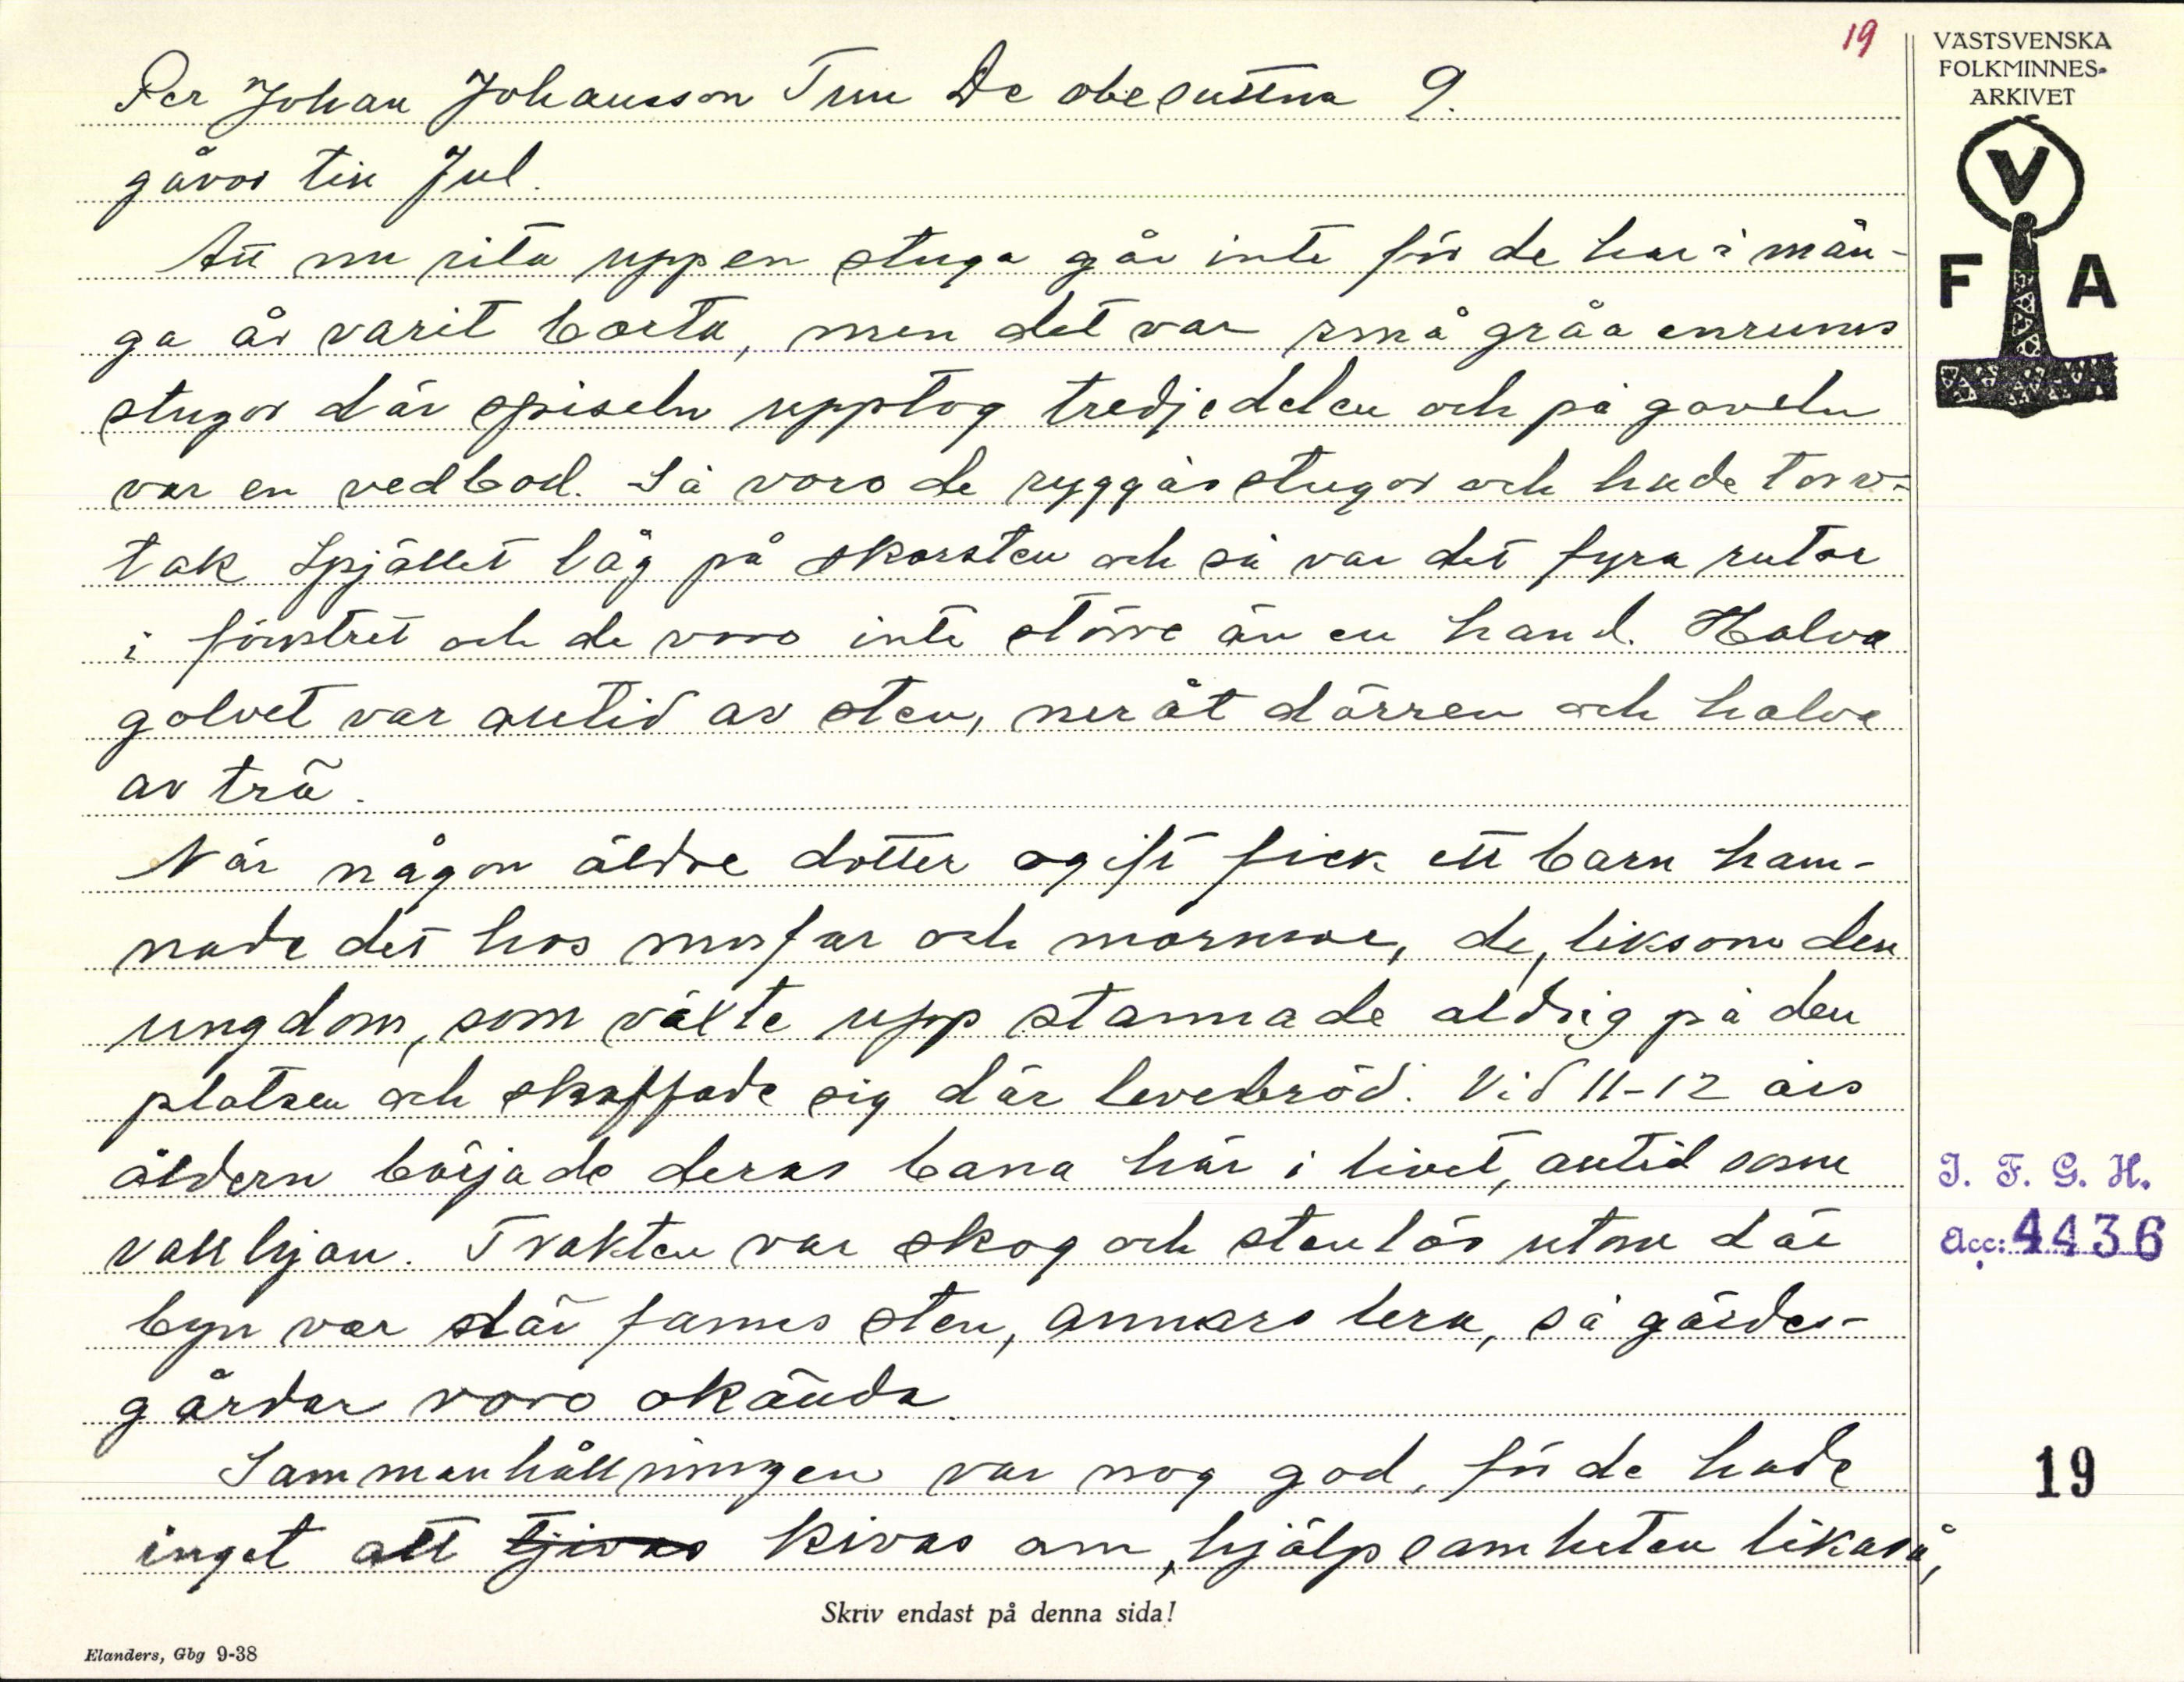 19
VÄSTSVENSKA
FOLKMINNES-
ARKIVET
V
F A
Per Johan Johansson Tun De obesuttna 9.
gåvor till Jul.
Att nu rita upp en stuga går inte för de har i mån-
ga år varit borta, men det var små gråa enrums
stugor där spiseln upptog tredjedelen och på gaveln
var en vedbod. Så voro de ryggåsstugor och hade torv-
tak Spjället låg på skorsten och så var det fyra rutor
i fönstret och de voro inte större än en hand. Halva
golvet var alltid av sten, neråt dörren och halva
av trä.
När någon äldre dotter ogift fick ett barn ham-
nade det hos morfar och mormor, de, liksom den
ungdom, som växte upp stannade aldrig på den
platsen och skaffade sig där levebröd. Vid 11-12 års
åldern började deras bana här i livet, alltid som
vallhjon. Trakten var skog och stenlös utom där
byn var där fanns sten, annars lera, så gärdes-
gårdar voro okända.
Sammanhållningen var nog god, för de hade
inget att tjivas kivas om, hjälpsamheten likaså,
I. F. G. H.
Acc: 4436
19
Skriv endast på denna sida!
Elanders, Gbg 9-38